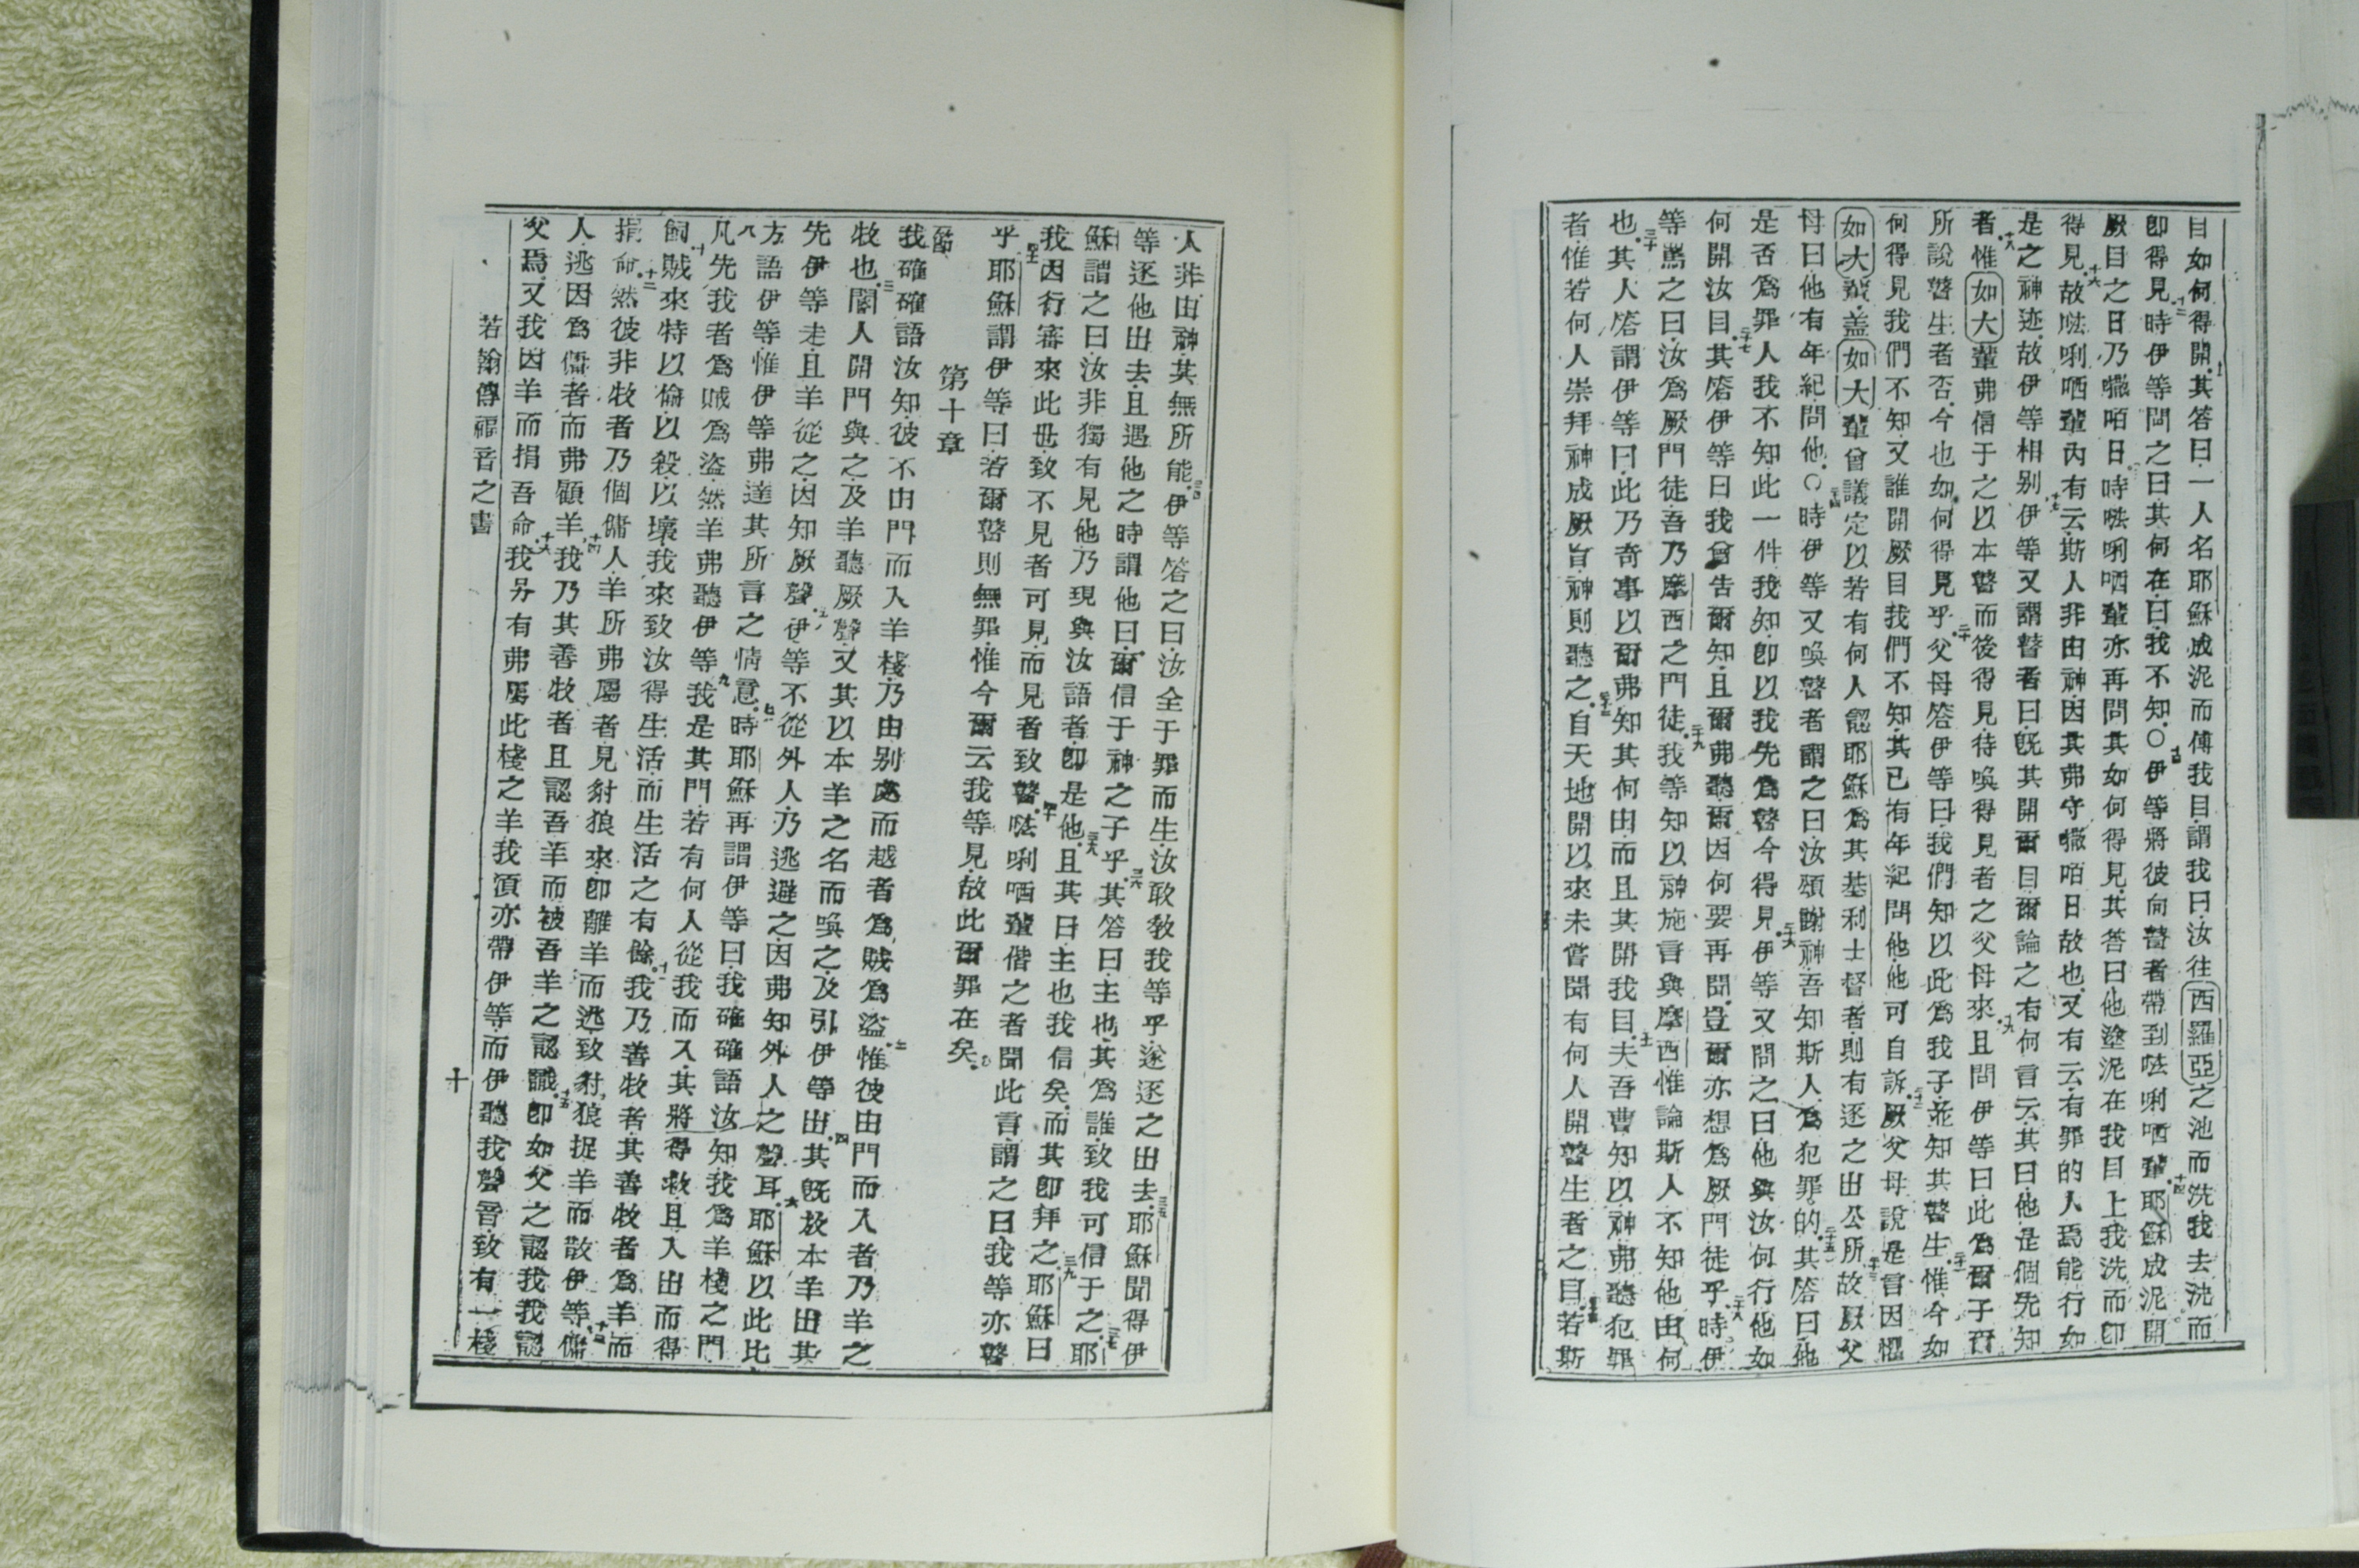 目如何得開其答曰一人名耶穌成泥而傅我目謂我曰汝往西羅亞之池而洗我去洗而
卽得見時伊等問之曰其何在曰我不知○伊等將彼向瞽者帶到𠵽唎哂輩耶穌成泥開
厥目之日乃𠺕咟日時𠵽唎哂輩亦再問其如何得見其答曰他塗泥在我目上我洗而卽
得見故𠵽唎哂輩內有云斯人非由神因其弗守𠺕咟日故也又有云有罪的人焉能行如
是之神迹故伊等相別伊等又謂瞽者曰旣其開爾目爾論之有何言云其曰他是個先知
者惟如大輩弗信于之以本瞽而後得見待喚得見者之父母來且問伊等曰此爲爾子爾
所說瞽生者否今也如何得見乎父母答伊等曰我們知以此爲我子並知其瞽生惟今如
何得見我們不知又誰開厥目我們不知其已有年紀問他他可自訴厥父母說是言因懼
如大輩蓋如大輩曾議定以若有何人認耶穌爲其基利士督者則有逐之出公所故厥父
母曰他有年紀問他○時伊等又喚瞽者謂之曰汝頌謝神吾知斯人爲犯罪的其答曰他
是否爲罪人我不知此一件我知卽以我先爲瞽今得見伊等又問之曰他與汝何行他如
何開汝目其答伊等曰我曾告爾知且爾弗聽爾因何要再聞豈爾亦想爲厥門徒乎時伊
等罵之曰汝爲厥門徒吾乃摩西之門徒我等知以神施言與摩西惟論斯人不知他由何
也其人答謂伊等曰此乃奇事以爾弗知其何由而且其開我目夫吾曹知以神弗聽犯罪
者惟若何人崇拜神成厥旨神則聽之自天地開以來未嘗聞有何人開瞽生者之目若斯
人非由神其無所能伊等答之曰汝全于罪而生汝敢敎我等乎遂逐之出去耶穌聞得伊
等逐他出去且遇他之時謂他曰爾信于神之子乎其答曰主也其爲誰致我可信于之耶
穌謂之曰汝非獨有見他乃現與汝語者卽是他且其曰主也我信矣而其卽拜之耶穌曰
我因行審來此世致不見者可見而見者致瞽𠵽唎哂輩偕之者聞此言謂之曰我等亦瞽
乎耶穌謂伊等曰若爾瞽則無罪惟今爾云我等見故此爾罪在矣
第十章
我確確語汝知彼不由門而入羊棧乃由別處而越者爲賊爲盜惟彼由門而入者乃羊之
牧也闇人開門與之及羊聽厥聲又其以本羊之名而喚之及引伊等出其旣放本羊出其
先伊等走且羊從之因知厥聲伊等不從外人乃逃避之因弗知外人之聲耳耶穌以此比
方語伊等惟伊等弗達其所言之情意時耶穌再謂伊等曰我確確語汝知我爲羊棧之門
凡先我者爲賊爲盜然羊弗聽伊等我是其門若有何人從我而入其將得救且入出而得
飼賊來特以偷以殺以壞我來致汝得生活而生活之有餘我乃善牧者其善牧者爲羊而
捐命然彼非牧者乃個傭人羊所弗屬者見豺狼來卽離羊而逃致豺狼捉羊而散伊等傭
人逃因爲傭者而弗顧羊我乃其善牧者且認吾羊而被吾羊之認識卽如父之認我我認
父焉又我因羊而捐吾命我另有弗屬此棧之羊我須亦帶伊等而伊聽我聲音致有一棧
若翰傳福音之書
十